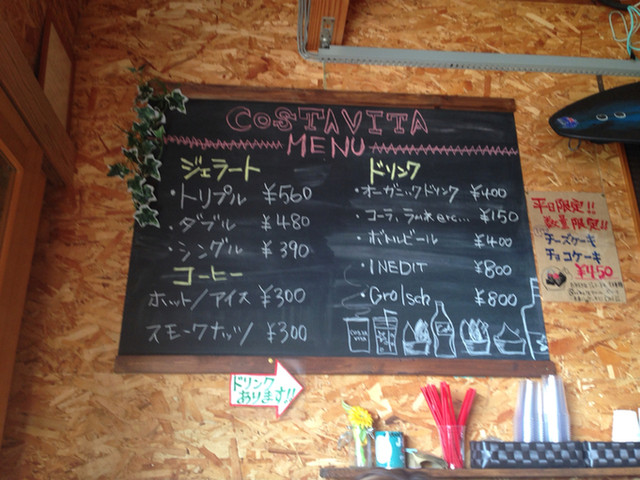 COSTAVITA
MENU
ジェラート
・トリプル ¥560
・ダブル ¥480
・シングル ¥390
コーヒー
ホット/アイス ¥300
スモークナッツ ¥300
ドリンク
・オーガニックドリンク ¥400
・コーラ, ラムネ etc... ¥150
・ボトルビール ¥400
・INEDIT ¥800
・Grolsch ¥800
平日限定!!
数量限定!!
チーズケーキ
チョコケーキ
¥450
ドリンク
あります!!